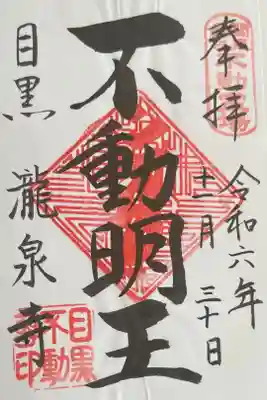 奉拝
令和六年
十一月
三十日
不動明王
目黒
瀧泉寺
目黒
不動
寺印